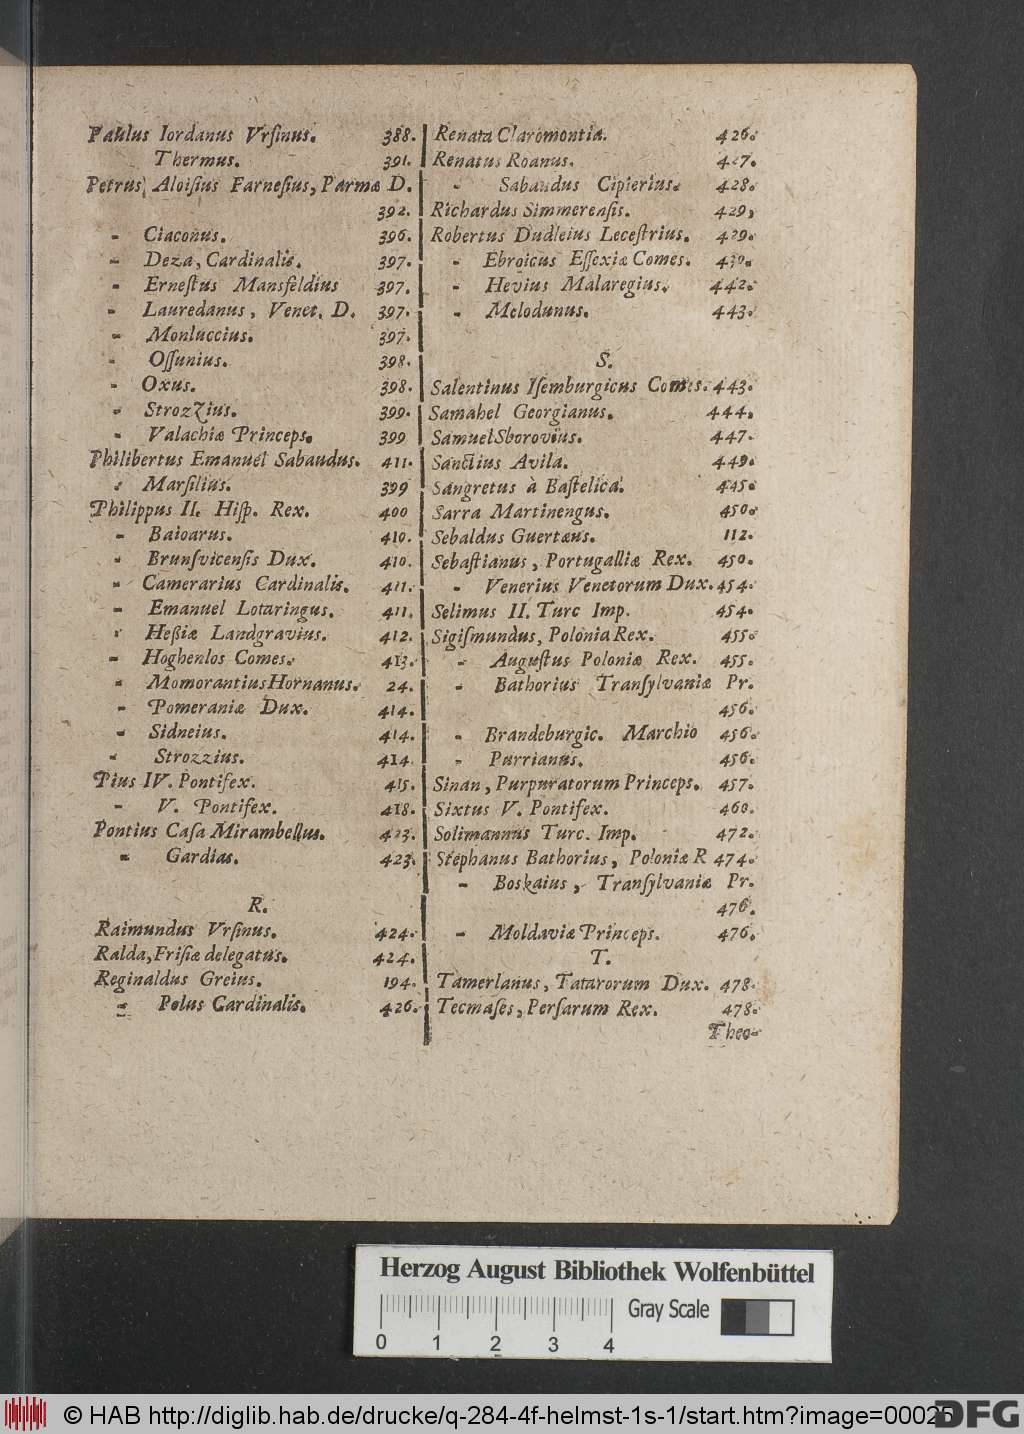 Paulus Iordanus Vrſinus. 388.
Thermus. 391.
Petrus, Aloiſius Farneſius, Parmæ D.
392.
- Ciaconus. 396.
- Deza, Cardinalis. 397.
- Erneſtus Mansfeldius 397.
- Lauredanus, Venet. D. 397.
- Monluccius. 397.
- Oſſunius. 398.
- Oxus. 398.
- Strozzius. 399.
- Valachiæ Princeps. 399
Philibertus Emanuel Sabaudus. 411.
- Marſilius. 399
Philippus II. Hiſp. Rex. 400
- Baioarus. 410.
- Brunſvicenſis Dux. 410.
- Camerarius Cardinalis. 411.
- Emanuel Lotaringus. 411.
- Heßiæ Landgravius. 412.
- Hoghenlos Comes. 413.
- Momorantius Hornanus. 24.
- Pomeraniæ Dux. 414.
- Sidneius. 414.
- Strozzius. 414
Pius IV. Pontifex. 415.
- V. Pontifex. 418.
Pontius Caſa Mirambellus. 423.
- Gardias. 423.
R.
Raimundus Vrſinus. 424.
Ralda, Friſiæ delegatus. 424.
Reginaldus Greius. 194.
- Polus Cardinalis. 426.
Renata Claromontia. 426.
Renatus Roanus. 427.
- Sabaudus Cipierius. 428.
Richardus Simmerenſis. 429.
Robertus Dudleius Leceſtrius. 429.
- Ebroicus Eſſexiæ Comes. 430.
- Hevius Malaregius. 442.
- Melodunus. 443.
S.
Salentinus Iſemburgicus Comes. 443.
Samahel Georgianus. 444.
Samuel Sborovius. 447.
Sanctius Avila. 449.
Sangretus à Baſtelica. 445.
Sarra Martinengus. 450.
Sebaldus Guertæus. 112.
Sebaſtianus, Portugalliæ Rex. 450.
- Venerius Venetorum Dux. 454.
Selimus II. Turc Imp. 454.
Sigiſmundus, Polonia Rex. 455.
- Auguſtus Poloniæ Rex. 455.
- Bathorius Tranſylvaniæ Pr.
456.
- Brandeburgic. Marchio 456.
- Purrianus. 456.
Sinan, Purpuratorum Princeps. 457.
Sixtus V. Pontifex. 460.
Solimannus Turc. Imp. 472.
Stephanus Bathorius, Poloniæ R 474.
- Boskaius, Tranſylvaniæ Pr.
476.
- Moldaviæ Princeps. 476.
T.
Tamerlanus, Tatarorum Dux. 478.
Tecmaſes, Perſarum Rex. 478.
Theo-
Herzog August Bibliothek Wolfenbüttel
Gray Scale
0 1 2 3 4
© HAB http://diglib.hab.de/drucke/q-284-4f-helmst-1s-1/start.htm?image=00025
DFG